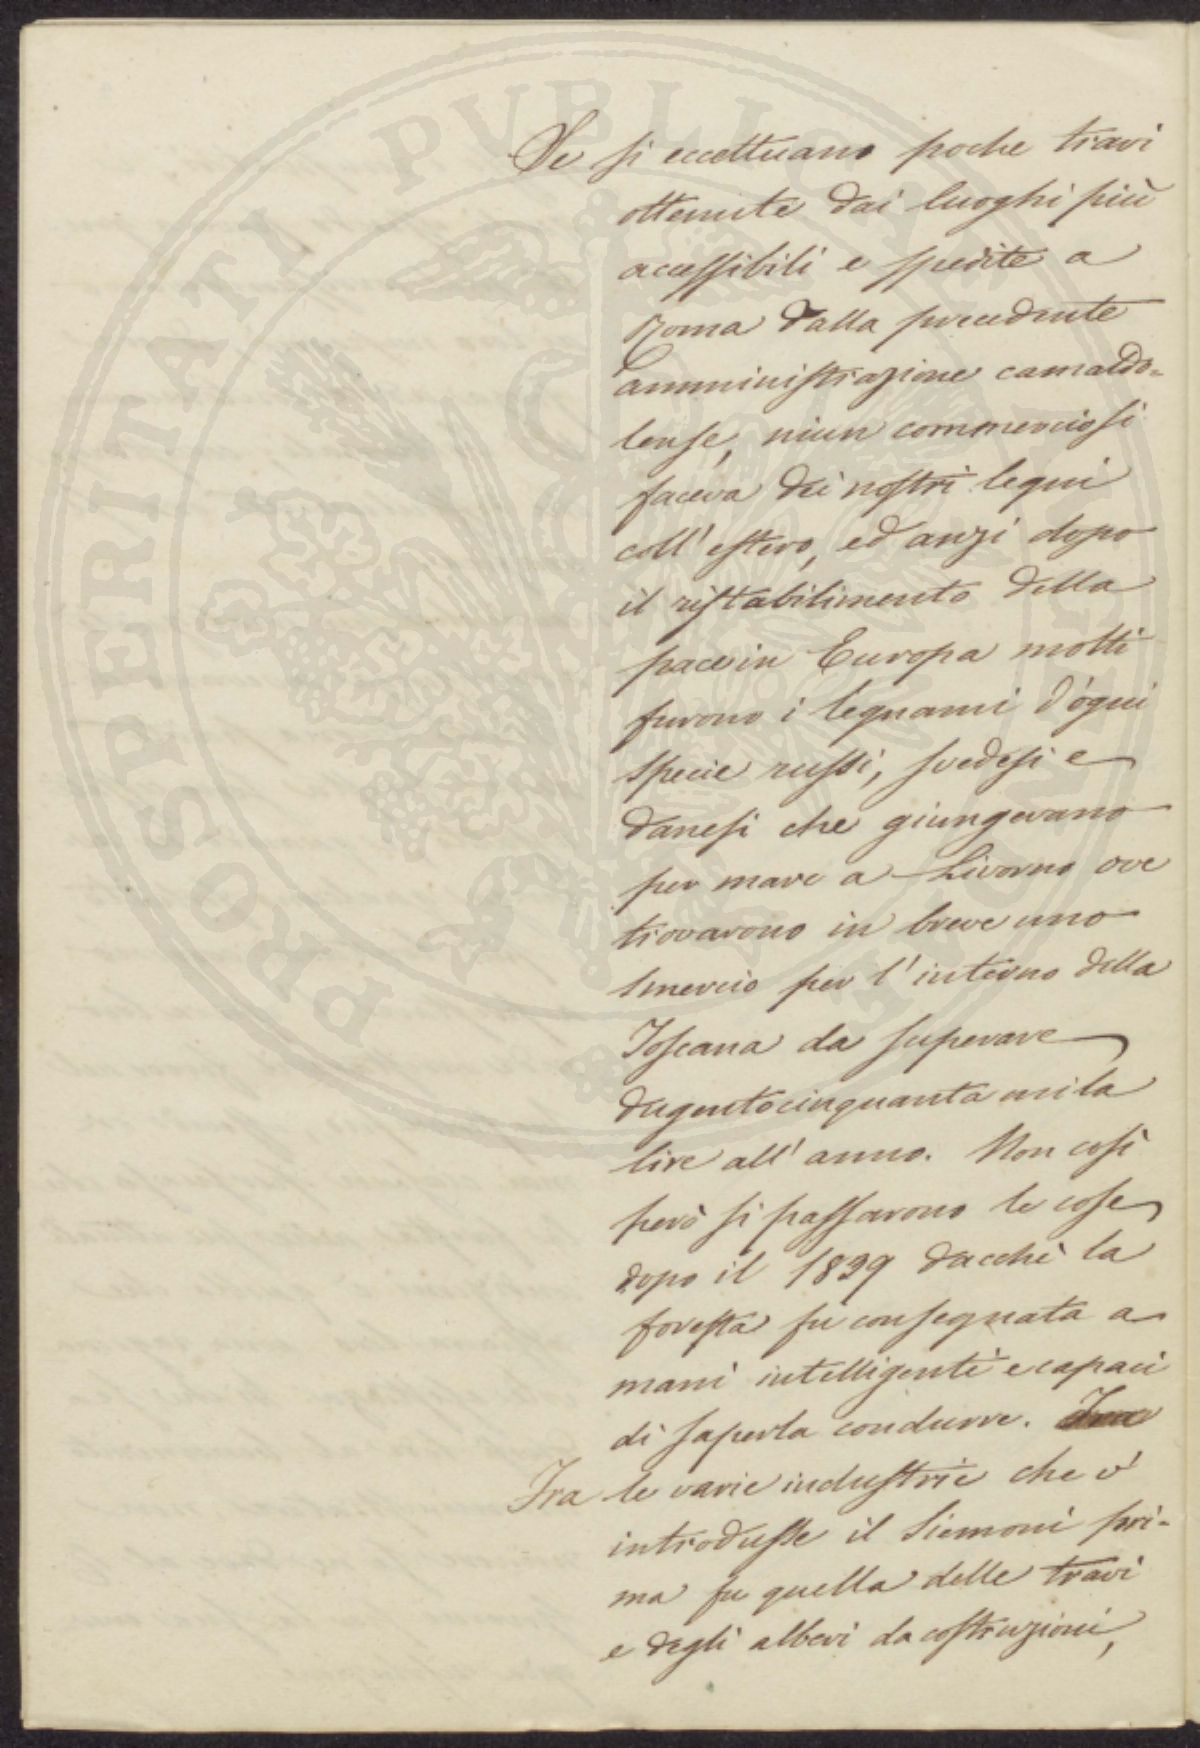 Se si eccettuano poche travi
ottenute dai luoghi più
accessibili e spedite a
Roma dalla precedente
amministrazione camaldo=
lense, niun commercio si
faceva dei nostri legni
coll' estero, ed anzi dopo
il ristabilimento della
pace in Europa molti
furono i legnami d'ogni
specie russi, svedesi e
danesi che giungevano
per mare a Livorno ove
trovarono in breve uno
smercio per l' interno della
Toscana da superare
dugentocinquanta mila
lire all' anno. Non così
però si passarono le cose
dopo il 1839 dacchè la
foresta fu consegnata a
mani intelligenti e capaci
di saperla condurre. Fra
Fra le varie industrie che v'
introdusse il Siemoni pri=
ma fu quella delle travi
e degli alberi da costruzioni,
PROSPERITATI PVBLICAE